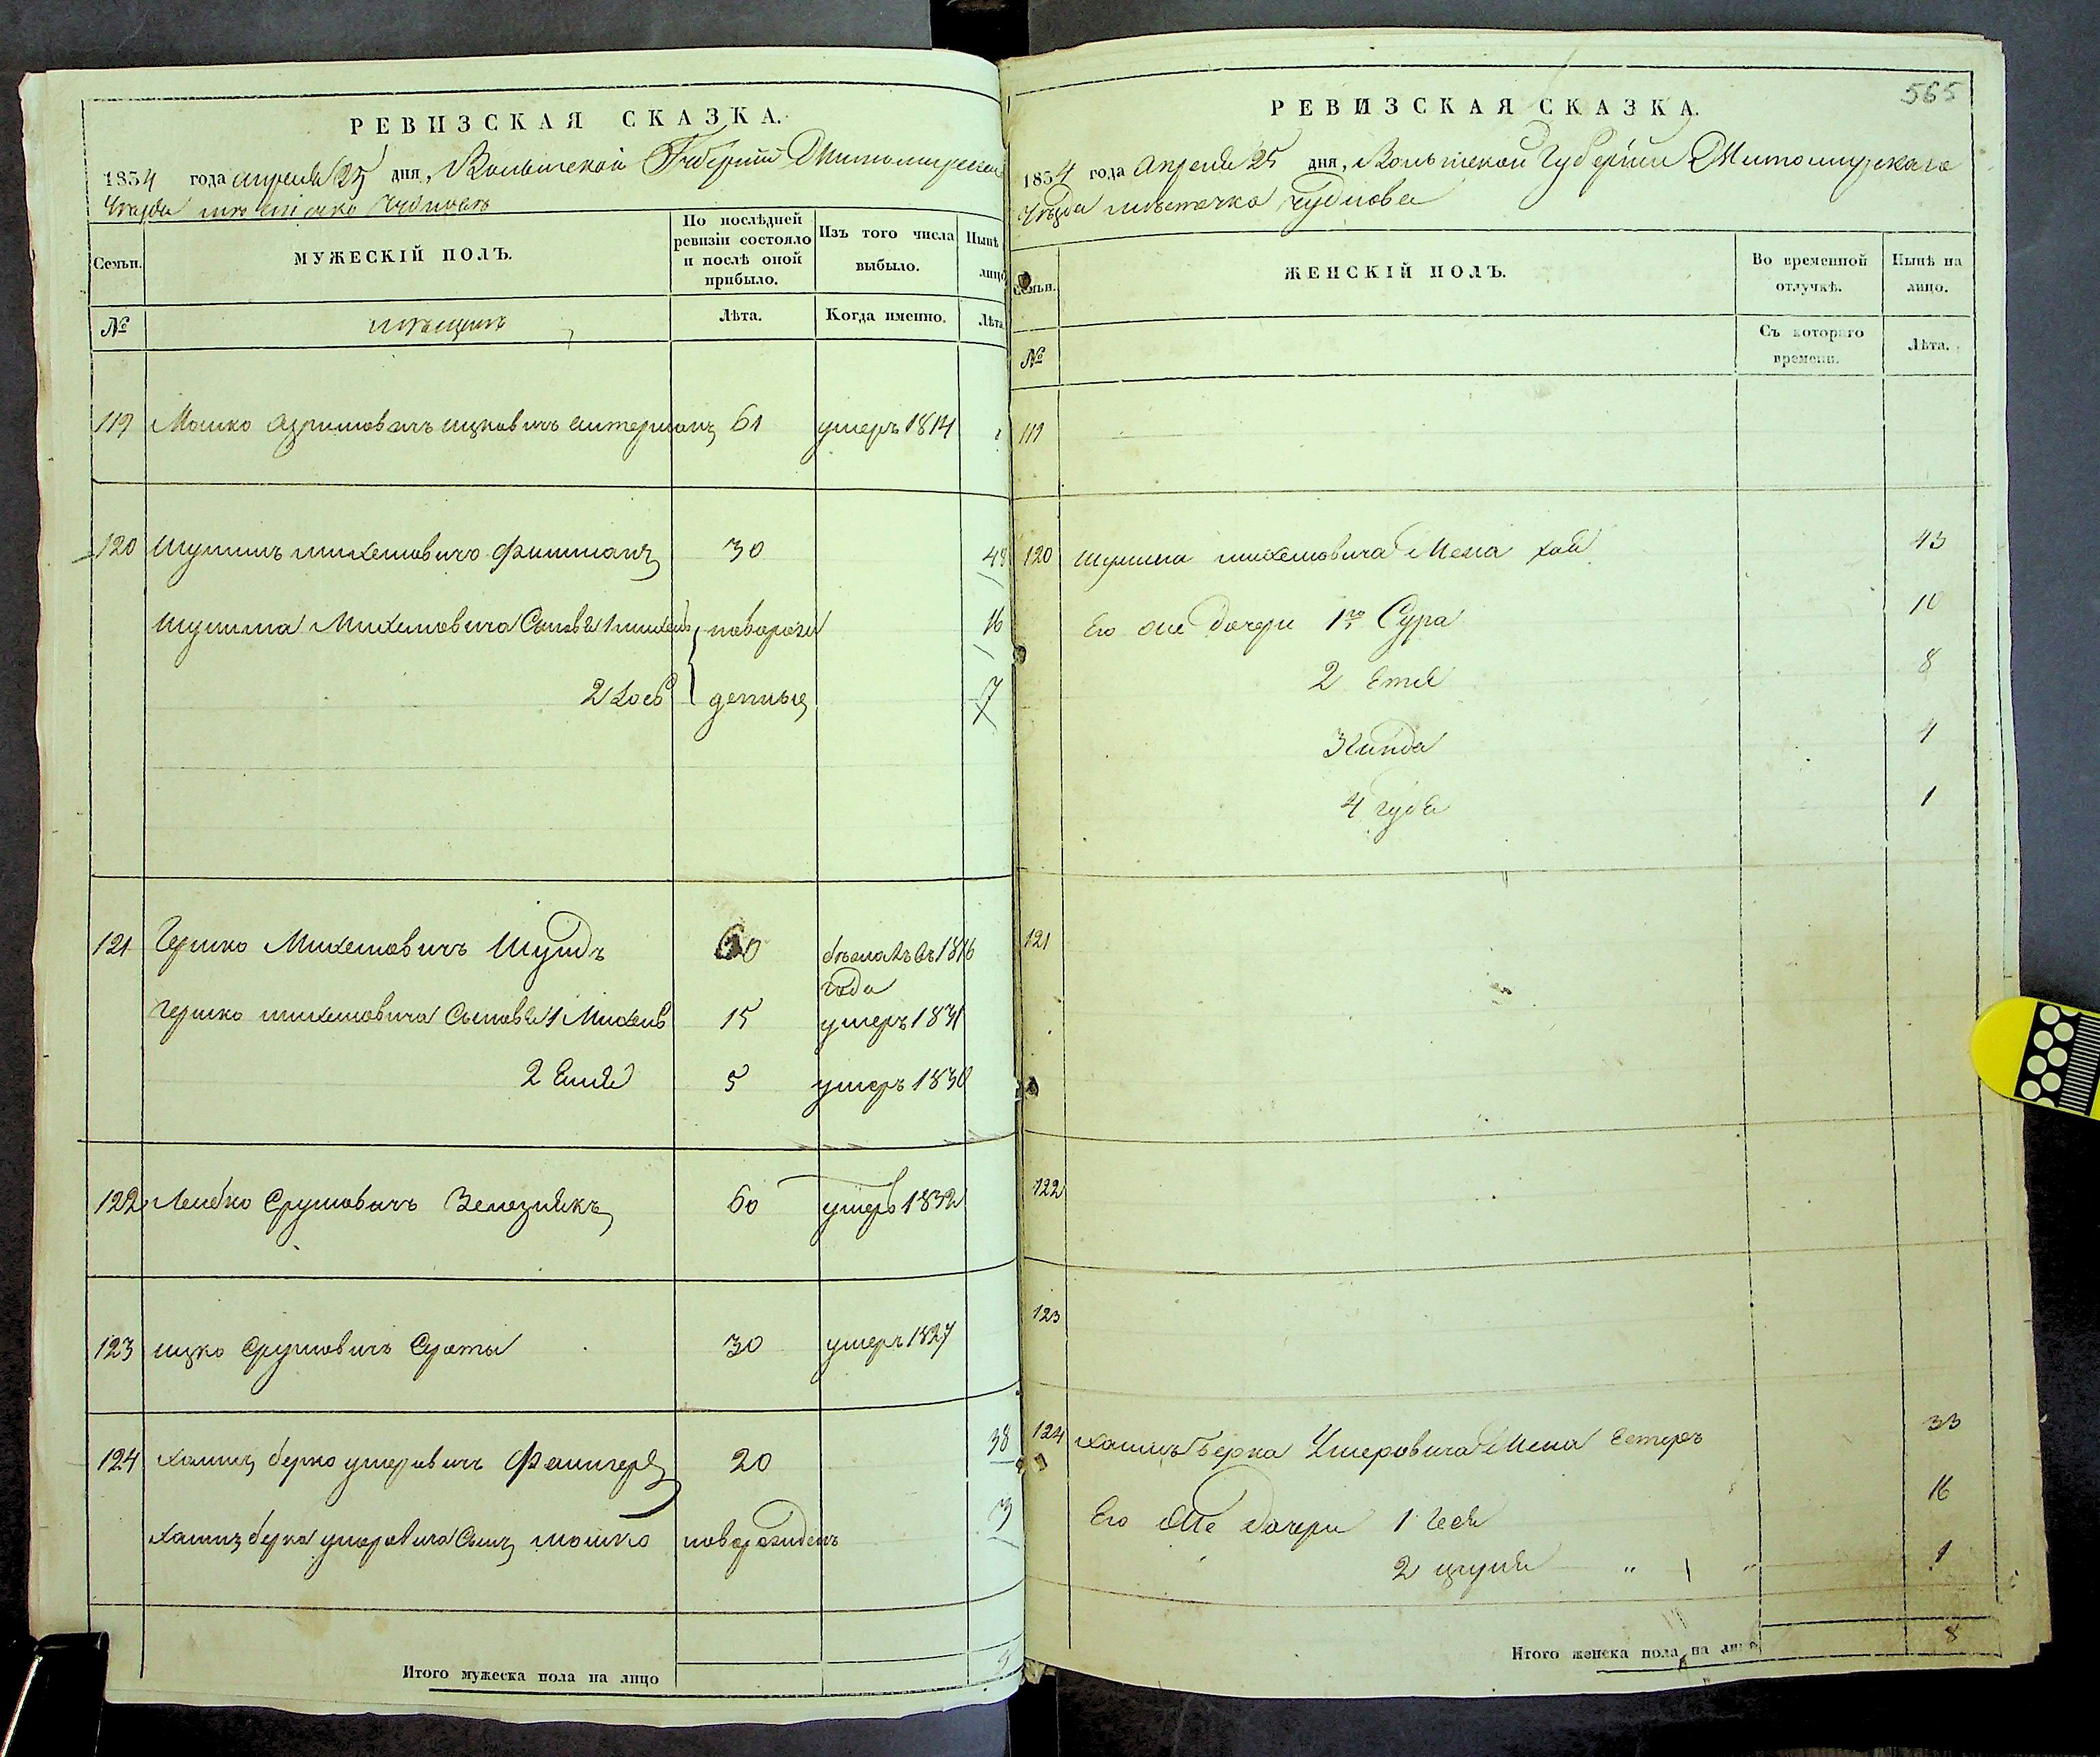 РЕВИЗСКАЯ СКАЗКА.
1854 года апреля 25 дня, Волынской Губернии Житомирскаго
Уезда местечка Чуднова
Семьи.
МУЖЕСКІЙ ПОЛЪ.
По послѣдней ревизіи состояло и послѣ оной прибыло.
Изъ того числа выбыло.
Нынѣ лицо
№
мещанъ
Лѣта.
Когда именно.
Лѣта
119 Мошко Ицковичъ 61 умеръ 1814
120 Шулимъ Михелиовичъ Фишманъ 30 48
Шулима Михелиовича Сыновья 1 Михель новорож 16
2 Іосъ денные 7
121 Гершко Михелиовичъ 60 1816
года
Гершко Михелиовича Сыновья 1 Михель 15 умеръ 1831
2 5 умеръ 1830
122 Лейбко Срулиовичъ 60 умеръ 1832
123 Ицко Срулиовичъ 30 умеръ 1827
124 Хаимъ Берко Ушеровичъ 20 38
Хаимъ Берка Ушеровича Сынъ Мошко новорожденъ 3
Итого мужеска пола на лицо
565
РЕВИЗСКАЯ СКАЗКА.
1854 года Апреля 25 дня, Волынской Губернии Житомирскаго
Уезда местечка Чуднова
Семьи.
ЖЕНСКІЙ ПОЛЪ.
Во временной отлучкѣ.
Нынѣ на лицо.
№
Съ котораго времени.
Лѣта.
119
120 Шулима Михелиовича Жена Хая 43
Его же дочери 1я Сура 10
2 Етя 8
3 4
4 1
121
122
123
124 Хаимъ Берка Ушеровича Жена Естеръ 33
Его же дочери 1 16
2 " \ " 1
Итого женска пола на лицо 8